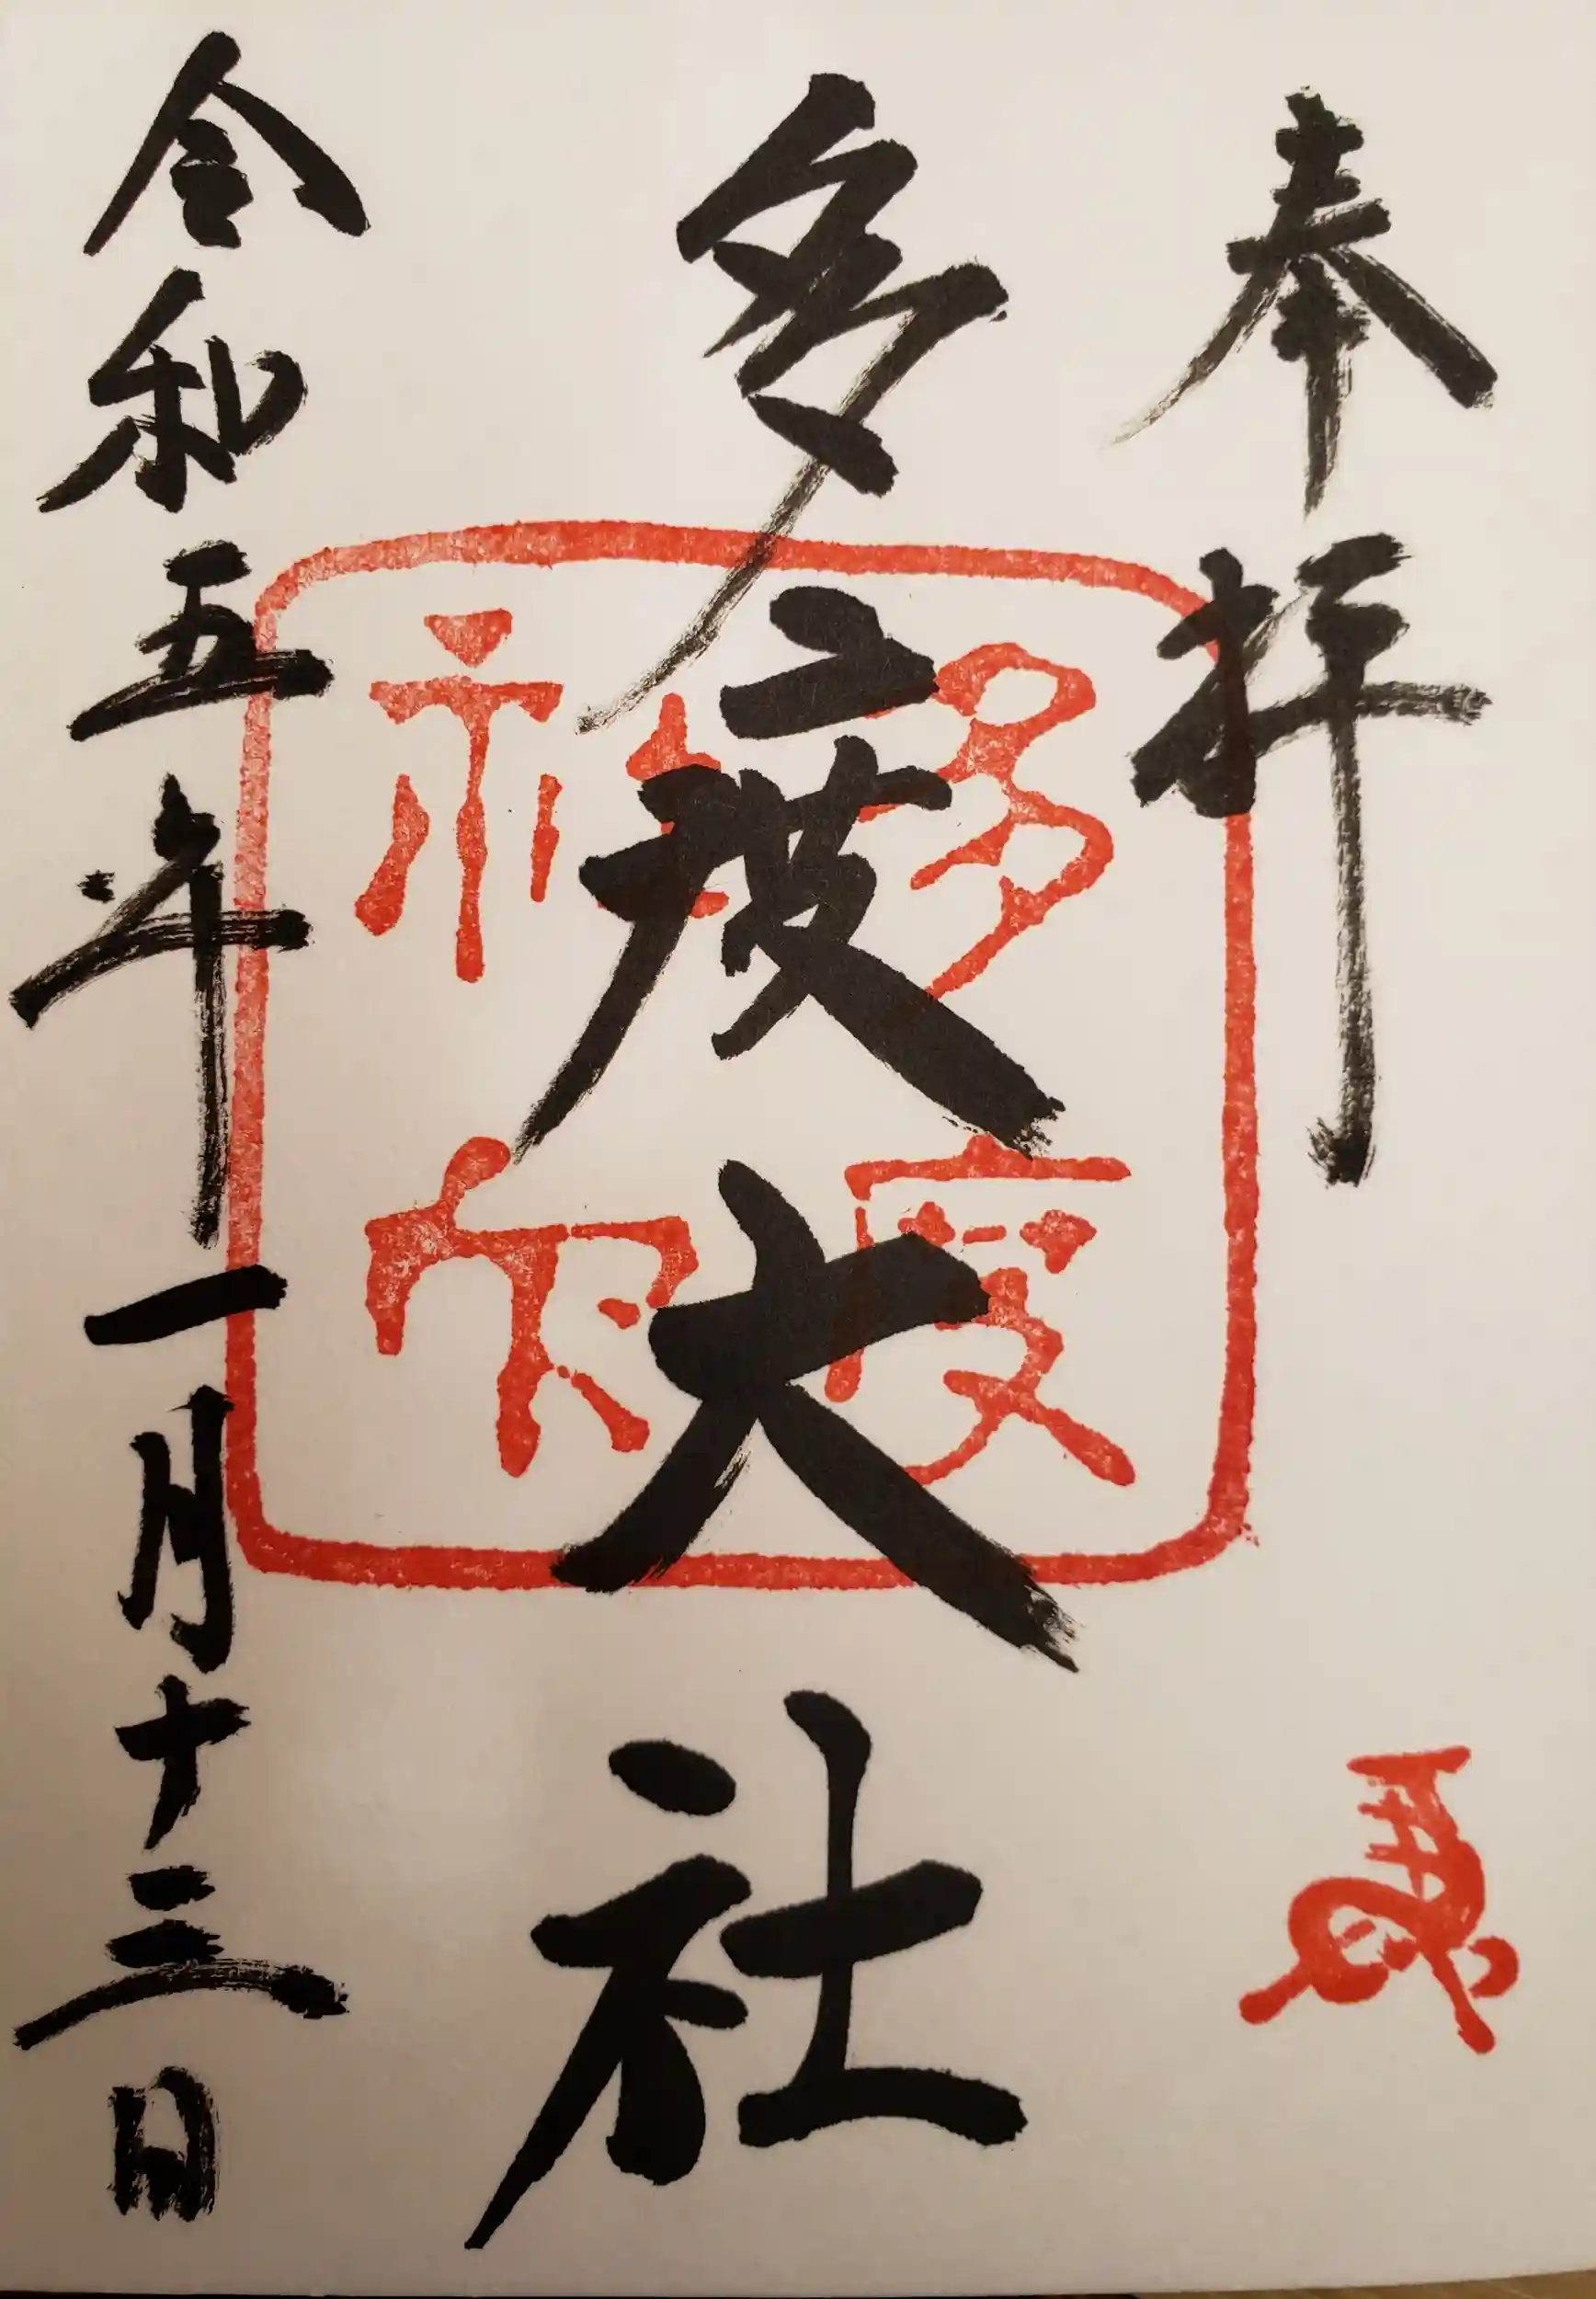 奉拝
多度大社
多度神印
令和五年一月十三日